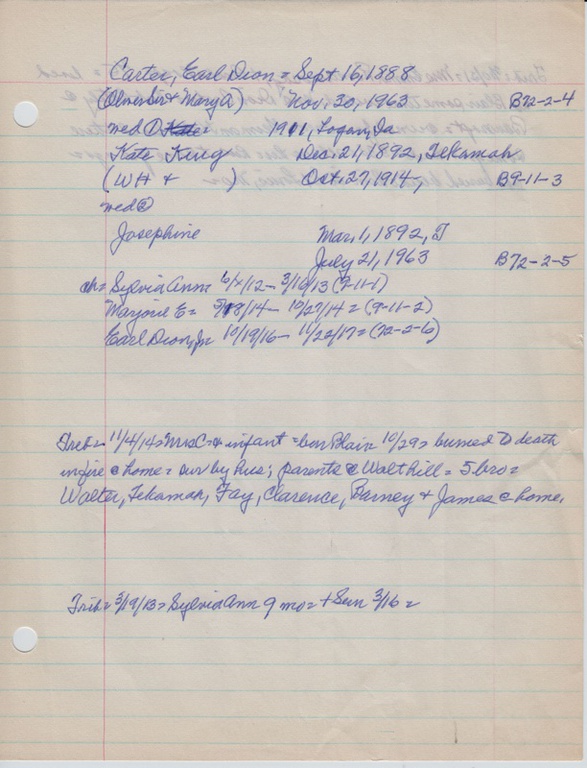 Carter, Earl Dion = Sept 16, 1888
(Oliver Sr + Mary A) Nov. 30, 1963 B72-2-4
med ① Kate: 1911, Logan, Ia
Kate King Dec. 21, 1892, Tekamah
(WH + ) Oct. 27, 1914, B9-11-3
med ②
Josephine Mar. 1, 1892,
July 21, 1963 B72-2-5
ch = Sylvia Ann = 6/ /12 - 3/16/13 (9-11-1)
Marjorie E = 5/18/14 - 10/27/14 = (9-11-2)
Earl Dion, Jr 10/19/16 - 11/22/17 = (72-2-6)
Trib = 11/4/14 = Mrs C + infant = bur Blair 10/29 = burned to death
in fire @ home = sur by hus; parents @ Walthill = 5 bro =
Walter, Tekamah, Fay, Clarence, Barney + James @ home.
Trib = 3/19/13 = Sylvia Ann 9 mo = + Sun 3/16 =